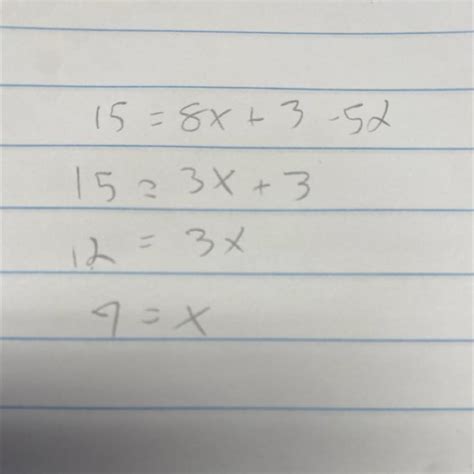 15 = 8x + 3 - 5x
15 = 3x + 3
12 = 3x
4 = x